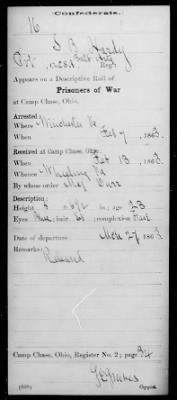 Confederate.
H
S B Hardy
Pvt, Co. A
Appears on a Descriptive Roll of
Prisoners of War
at Camp Chase, Ohio.
Arrested:
Where Winchester Va
When Feb 7, 1863.
Received at Camp Chase, Ohio:
When Feb 13, 1863.
Whence Wheeling Va
By whose order Maj Darr
Description:
Height 5 ft. in.; age 23
Eyes Blue; hair; complexion Fair
Date of departure Mch 27 1863
Remarks:
Released
Camp Chase, Ohio, Register No. 2; page 94
Copyist.